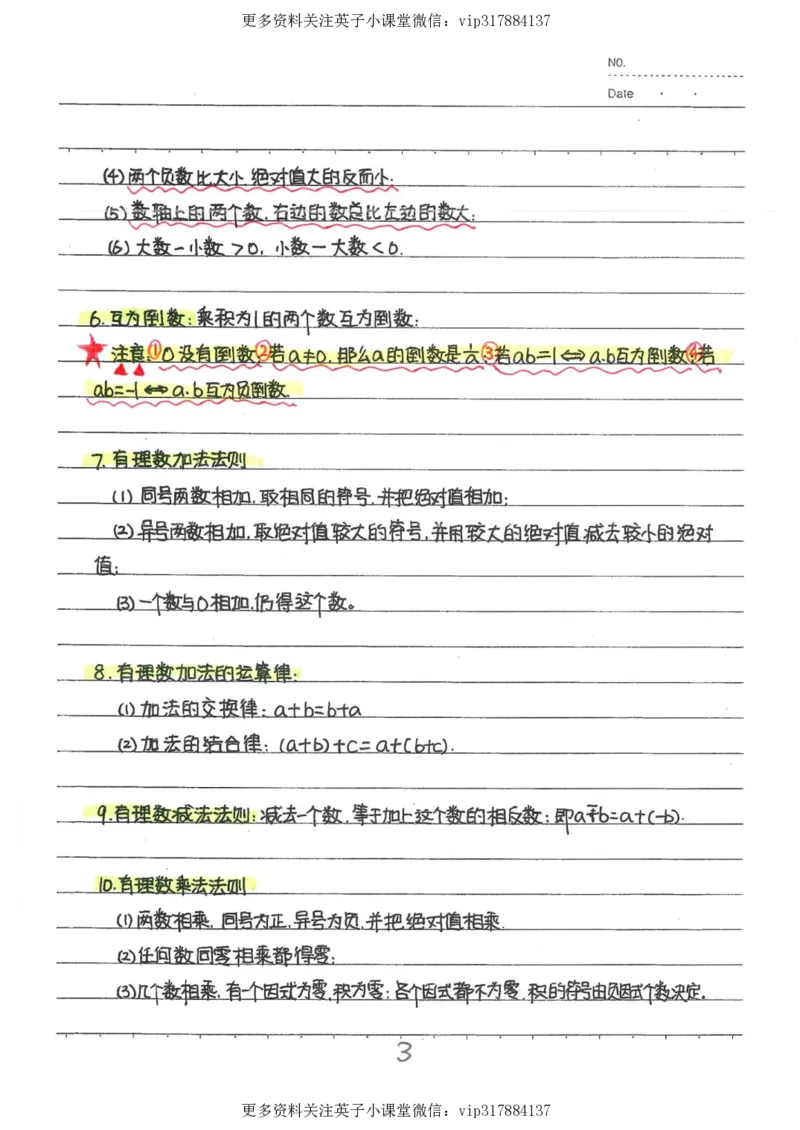 更多资料关注英子小课堂微信：vip317884137
NO.
Date · ·
(4)两个负数比大小,绝对值大的反而小;
(5)数轴上的两个数,右边的数总比左边的数大;
(6)大数-小数>0, 小数-大数<0.
6.互为倒数:乘积为1的两个数互为倒数;
★注意:①0没有倒数②若a≠0,那么a的倒数是1/a;③若ab=1⇔a.b互为倒数;④若
ab=-1⇔a.b互为负倒数.
7.有理数加法法则
(1)同号两数相加,取相同的符号,并把绝对值相加;
(2)异号两数相加,取绝对值较大的符号,并用较大的绝对值减去较小的绝对
值;
(3)一个数与0相加,仍得这个数。
8.有理数加法的运算律:
(1)加法的交换律: a+b=b+a
(2)加法的结合律: (a+b)+c=a+(b+c).
9.有理数减法法则:减去一个数,等于加上这个数的相反数;即a-b=a+(-b).
10.有理数乘法法则
(1)两数相乘,同号为正,异号为负,并把绝对值相乘.
(2)任何数同零相乘都得零;
(3)几个数相乘,有一个因式为零,积为零;各个因式都不为零,积的符号由负因式个数决定.
3
更多资料关注英子小课堂微信：vip317884137